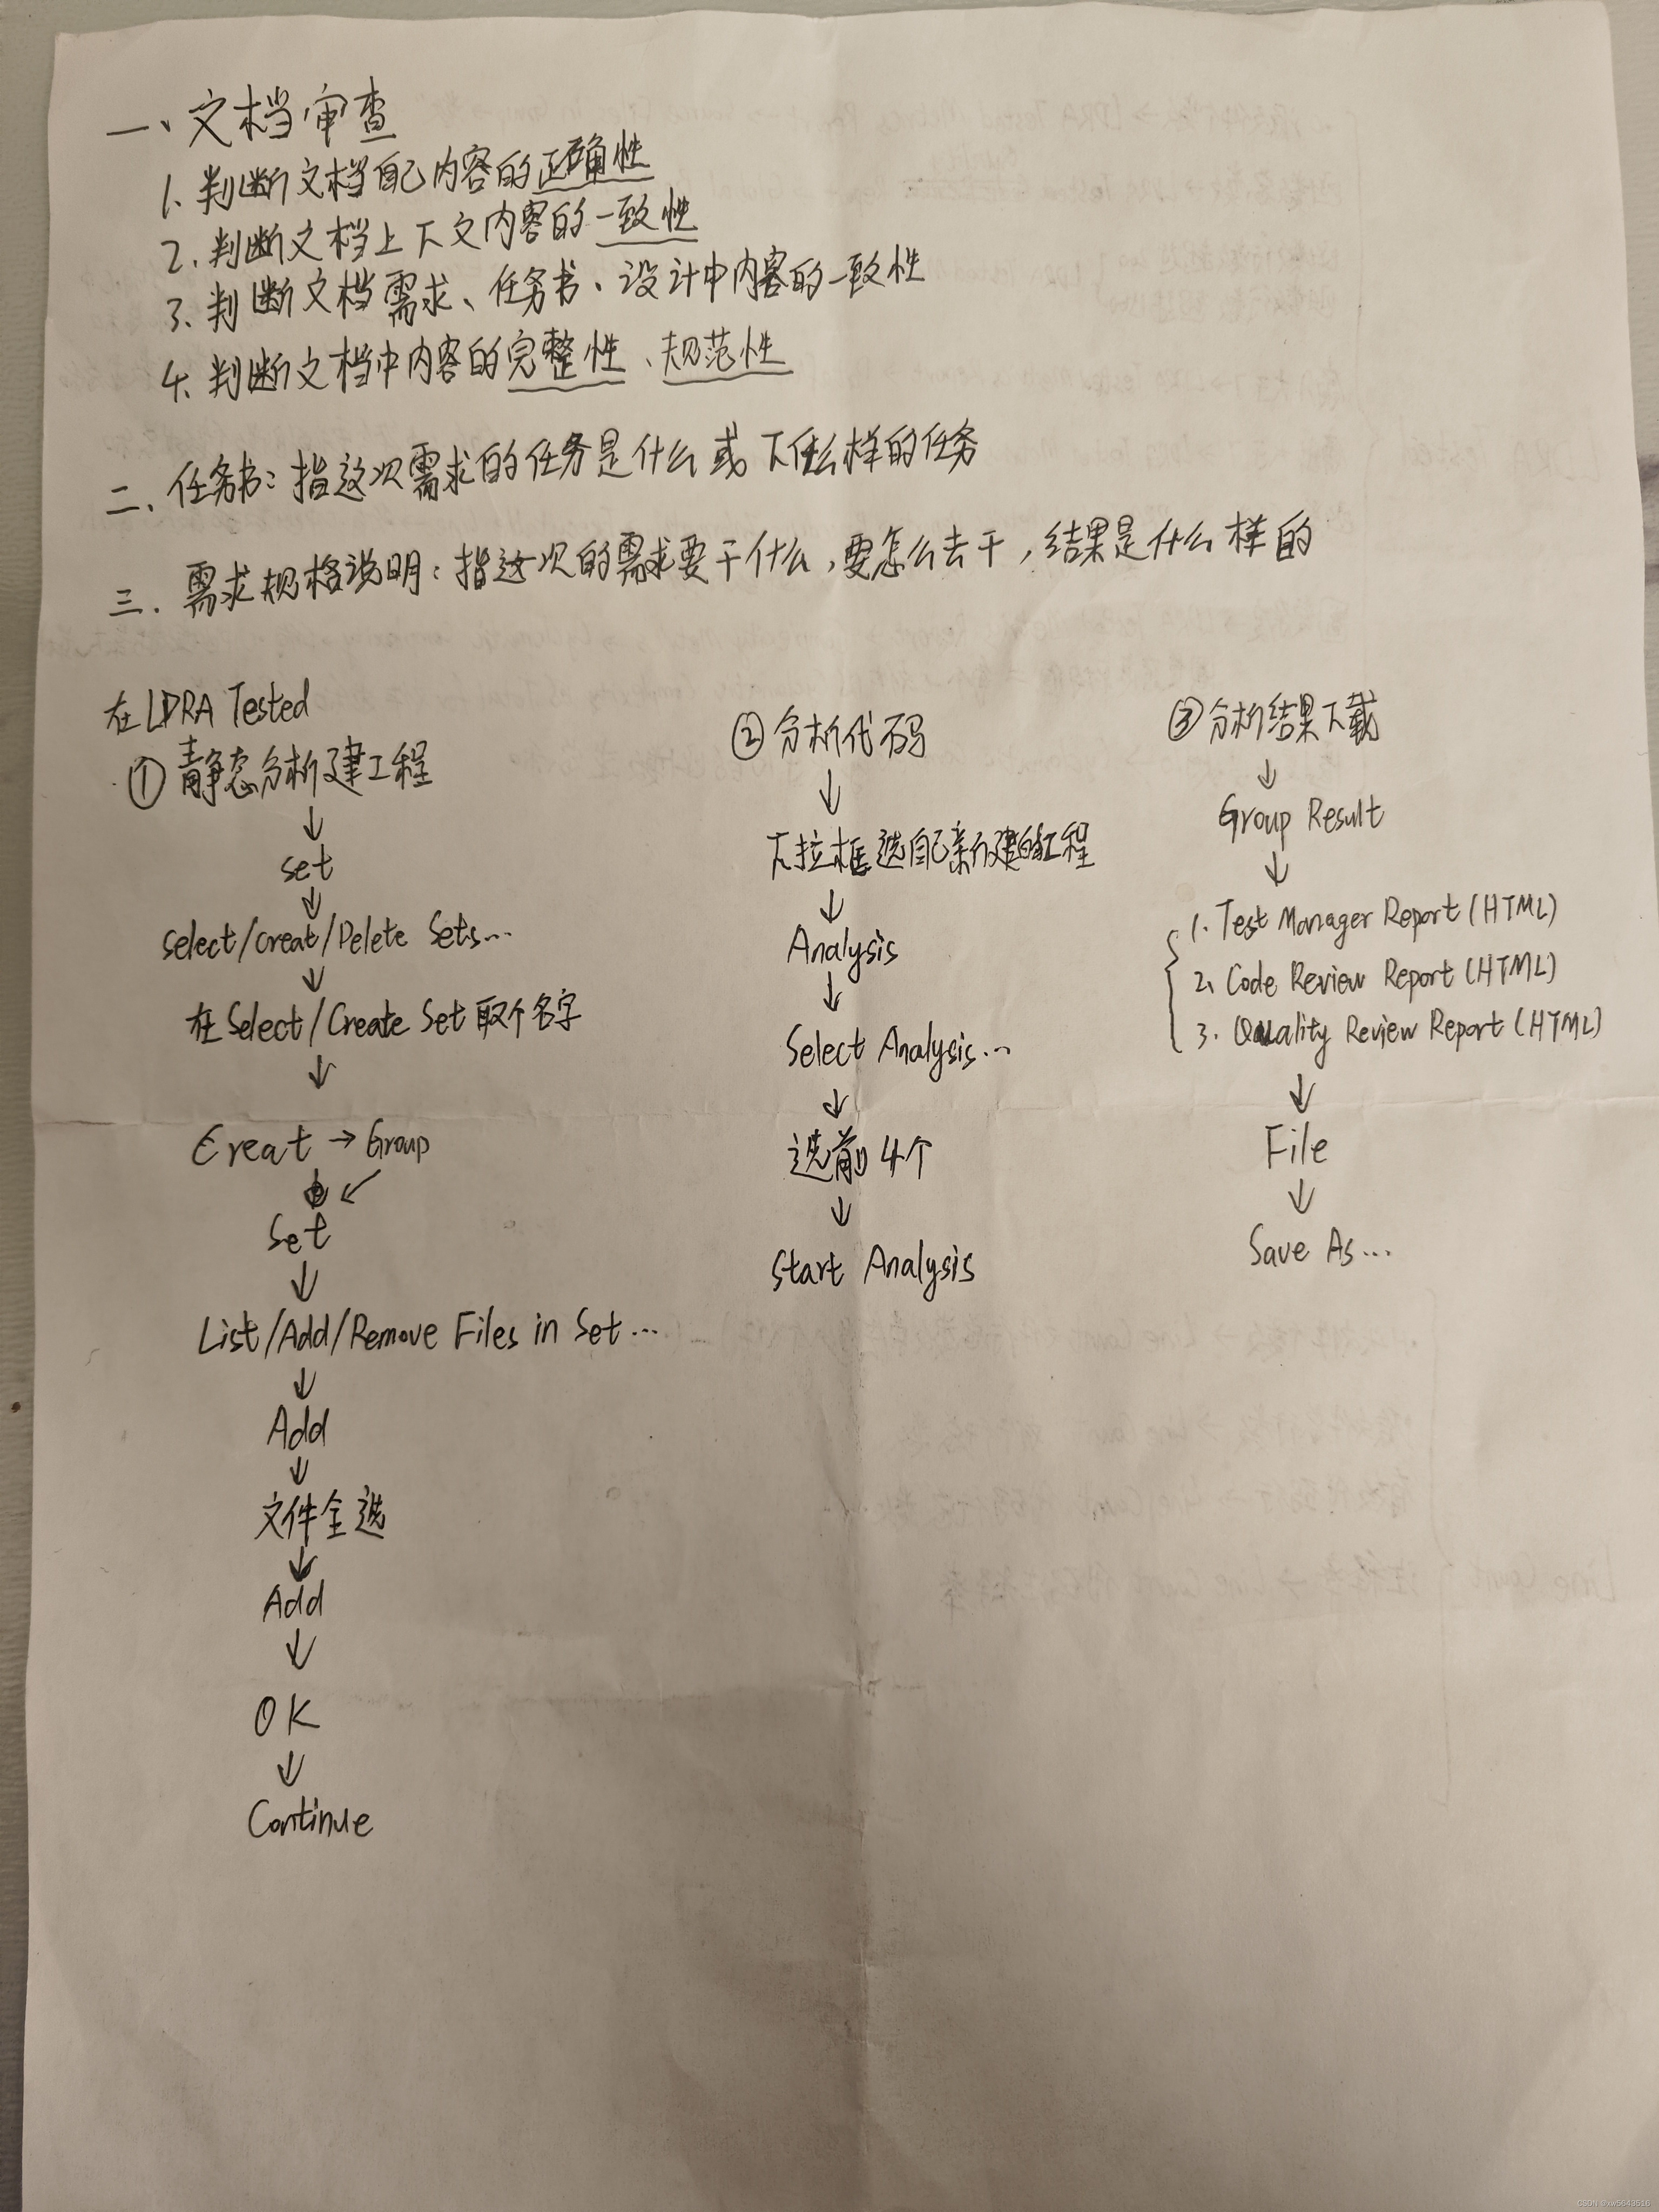 一、文档审查
1. 判断文档自己内容的正确性
2. 判断文档上下文内容的一致性
3. 判断文档需求、任务书、设计中内容的一致性
4. 判断文档中内容的完整性、规范性
二、任务书：指这次需求的任务是什么或下什么样的任务
三、需求规格说明：指这次的需求要干什么，要怎么去干，结果是什么样的
在LDRA Tested
① 静态分析建工程
↓
set
↓
Select/Creat/Delete Sets...
↓
在Select/Create Set取个名字
↓
Creat → Group
↙
Set
↓
List/Add/Remove Files in Set...
↓
Add
↓
文件全选
↓
Add
↓
OK
↓
Continue
② 分析代码
↓
下拉框选自己新建的工程
↓
Analysis
↓
Select Analysis...
↓
选前4个
↓
Start Analysis
③ 分析结果下载
↓
Group Result
↓
1. Test Manager Report (HTML)
2. Code Review Report (HTML)
3. Quality Review Report (HTML)
↓
File
↓
Save As...
CSDN @xw5643516